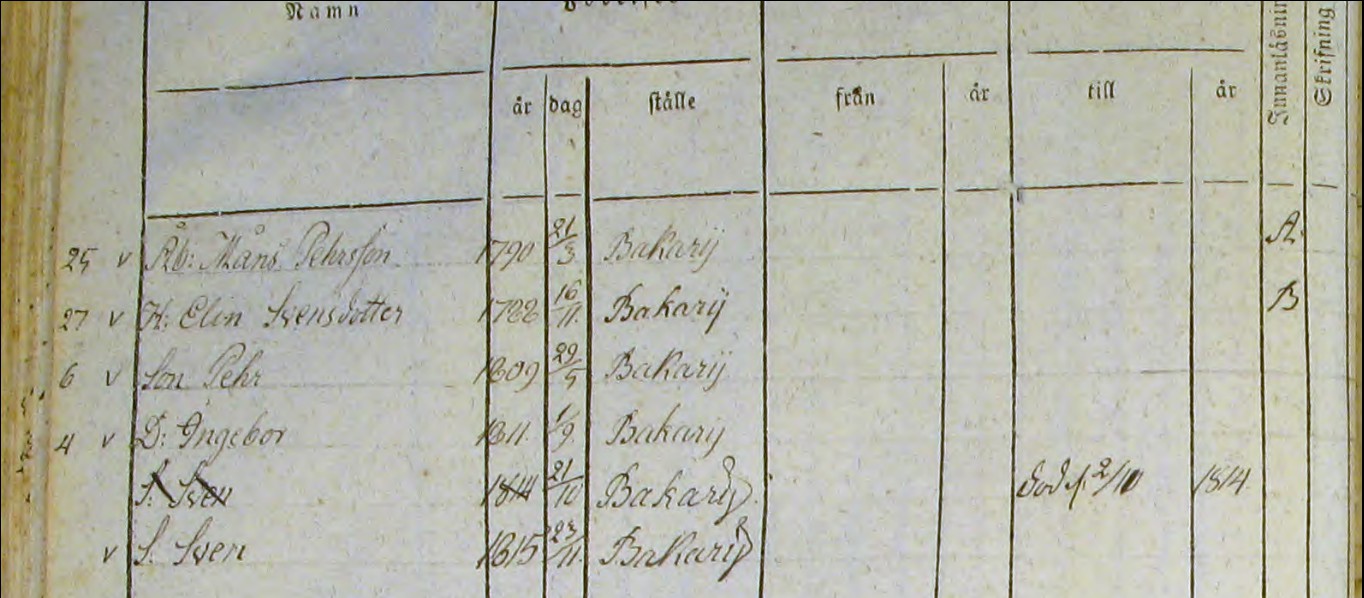 Namn
Innanläsning
Skrifning
år dag ställe från år till år
25 v Åb: Måns Pehrsson 1790 21/3 Bakarÿ A.
27 v H: Elin Svensdotter 1788 16/11. Bakarÿ B
6 v Son Pehr 1809 29/5 Bakarÿ
4 v D: Ingebor 1811. 1/9. Bakarÿ
S. Sven 1814 21/10 Bakarÿ. död d. 2/10 1814.
v S. Sven 1815 23/11. Bakarÿ